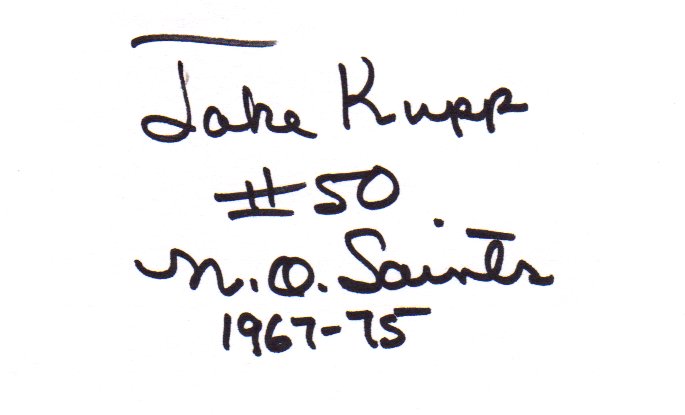 Jake Kupp
#50
N.O. Saints
1967-75